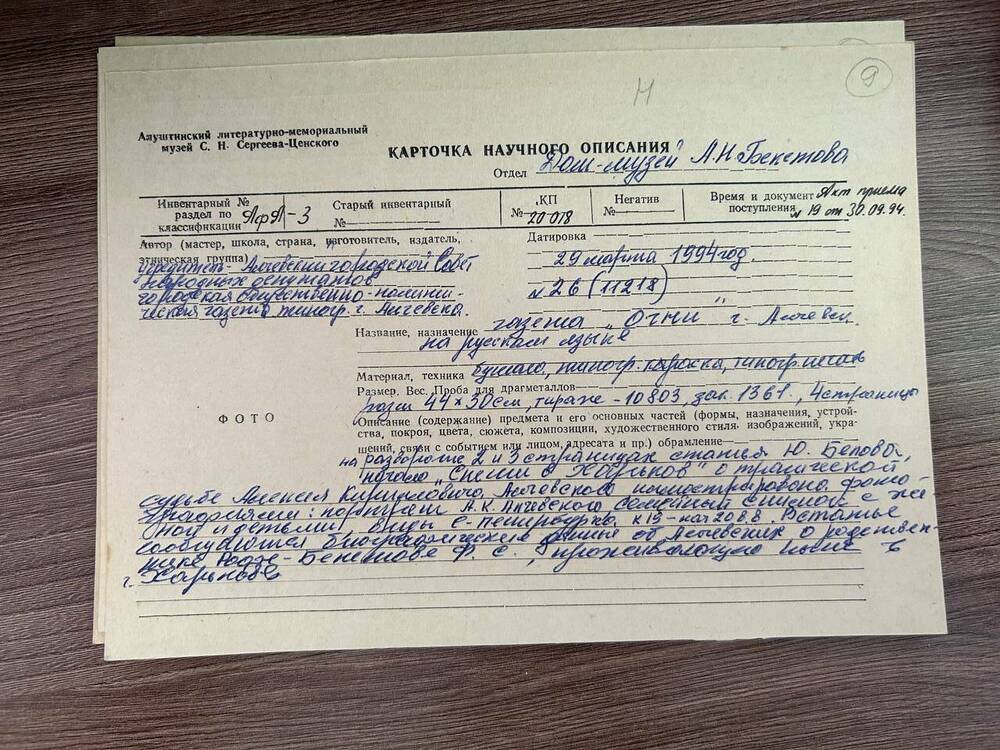 Н
9
Алуштинский литературно-мемориальный
музей С. Н. Сергеева-Ценского
КАРТОЧКА НАУЧНОГО ОПИСАНИЯ
Отдел Дом-музей А.Н Бекетова
Инвентарный №
раздел по
классификации АфА-3
Старый инвентарный
№
КП
№ 20 018
Негатив
№
Время и документ
поступления Акт приема
№ 19 от 30.09.94.
Автор (мастер, школа, страна, изготовитель, издатель,
этническая группа)
учредитель - Алчевский городской Совет
народных депутатов
городская общественно-полити-
ческая газета типогр. г. Алчевска.
Датировка
29 марта 1994 год.
№ 26 (11218)
Название, назначение газета „Огни" г. Алчевск.
на русском языке
Материал, техника бумага, типогр. краска, типогр. печать
Размер. Вес. Проба для драгметаллов
разм 44 × 30 см, тираж - 10803, зак. 1361., 4 страницы
ФОТО
Описание (содержание) предмета и его основных частей (формы, назначения, устрой-
ства, покроя, цвета, сюжета, композиции, художественного стиля, изображений, укра-
шений, связи с событием или лицом, адресата и пр.) обрамление
на развороте 2 и 3 страницах статья Ю. Белова,
о трагической
судьбе Алексея Кирилловича Алчевского иллюстрирована фото-
графиями: портрет А. К. Алчевского семейный снимок с же-
ной и детьми виды С-Петербурга к 19 - нач 20 в в. В статье
сообщаются биографические об Алчевских о родствен-
нике Ф. С., проживающего ныне в
г. Харькове